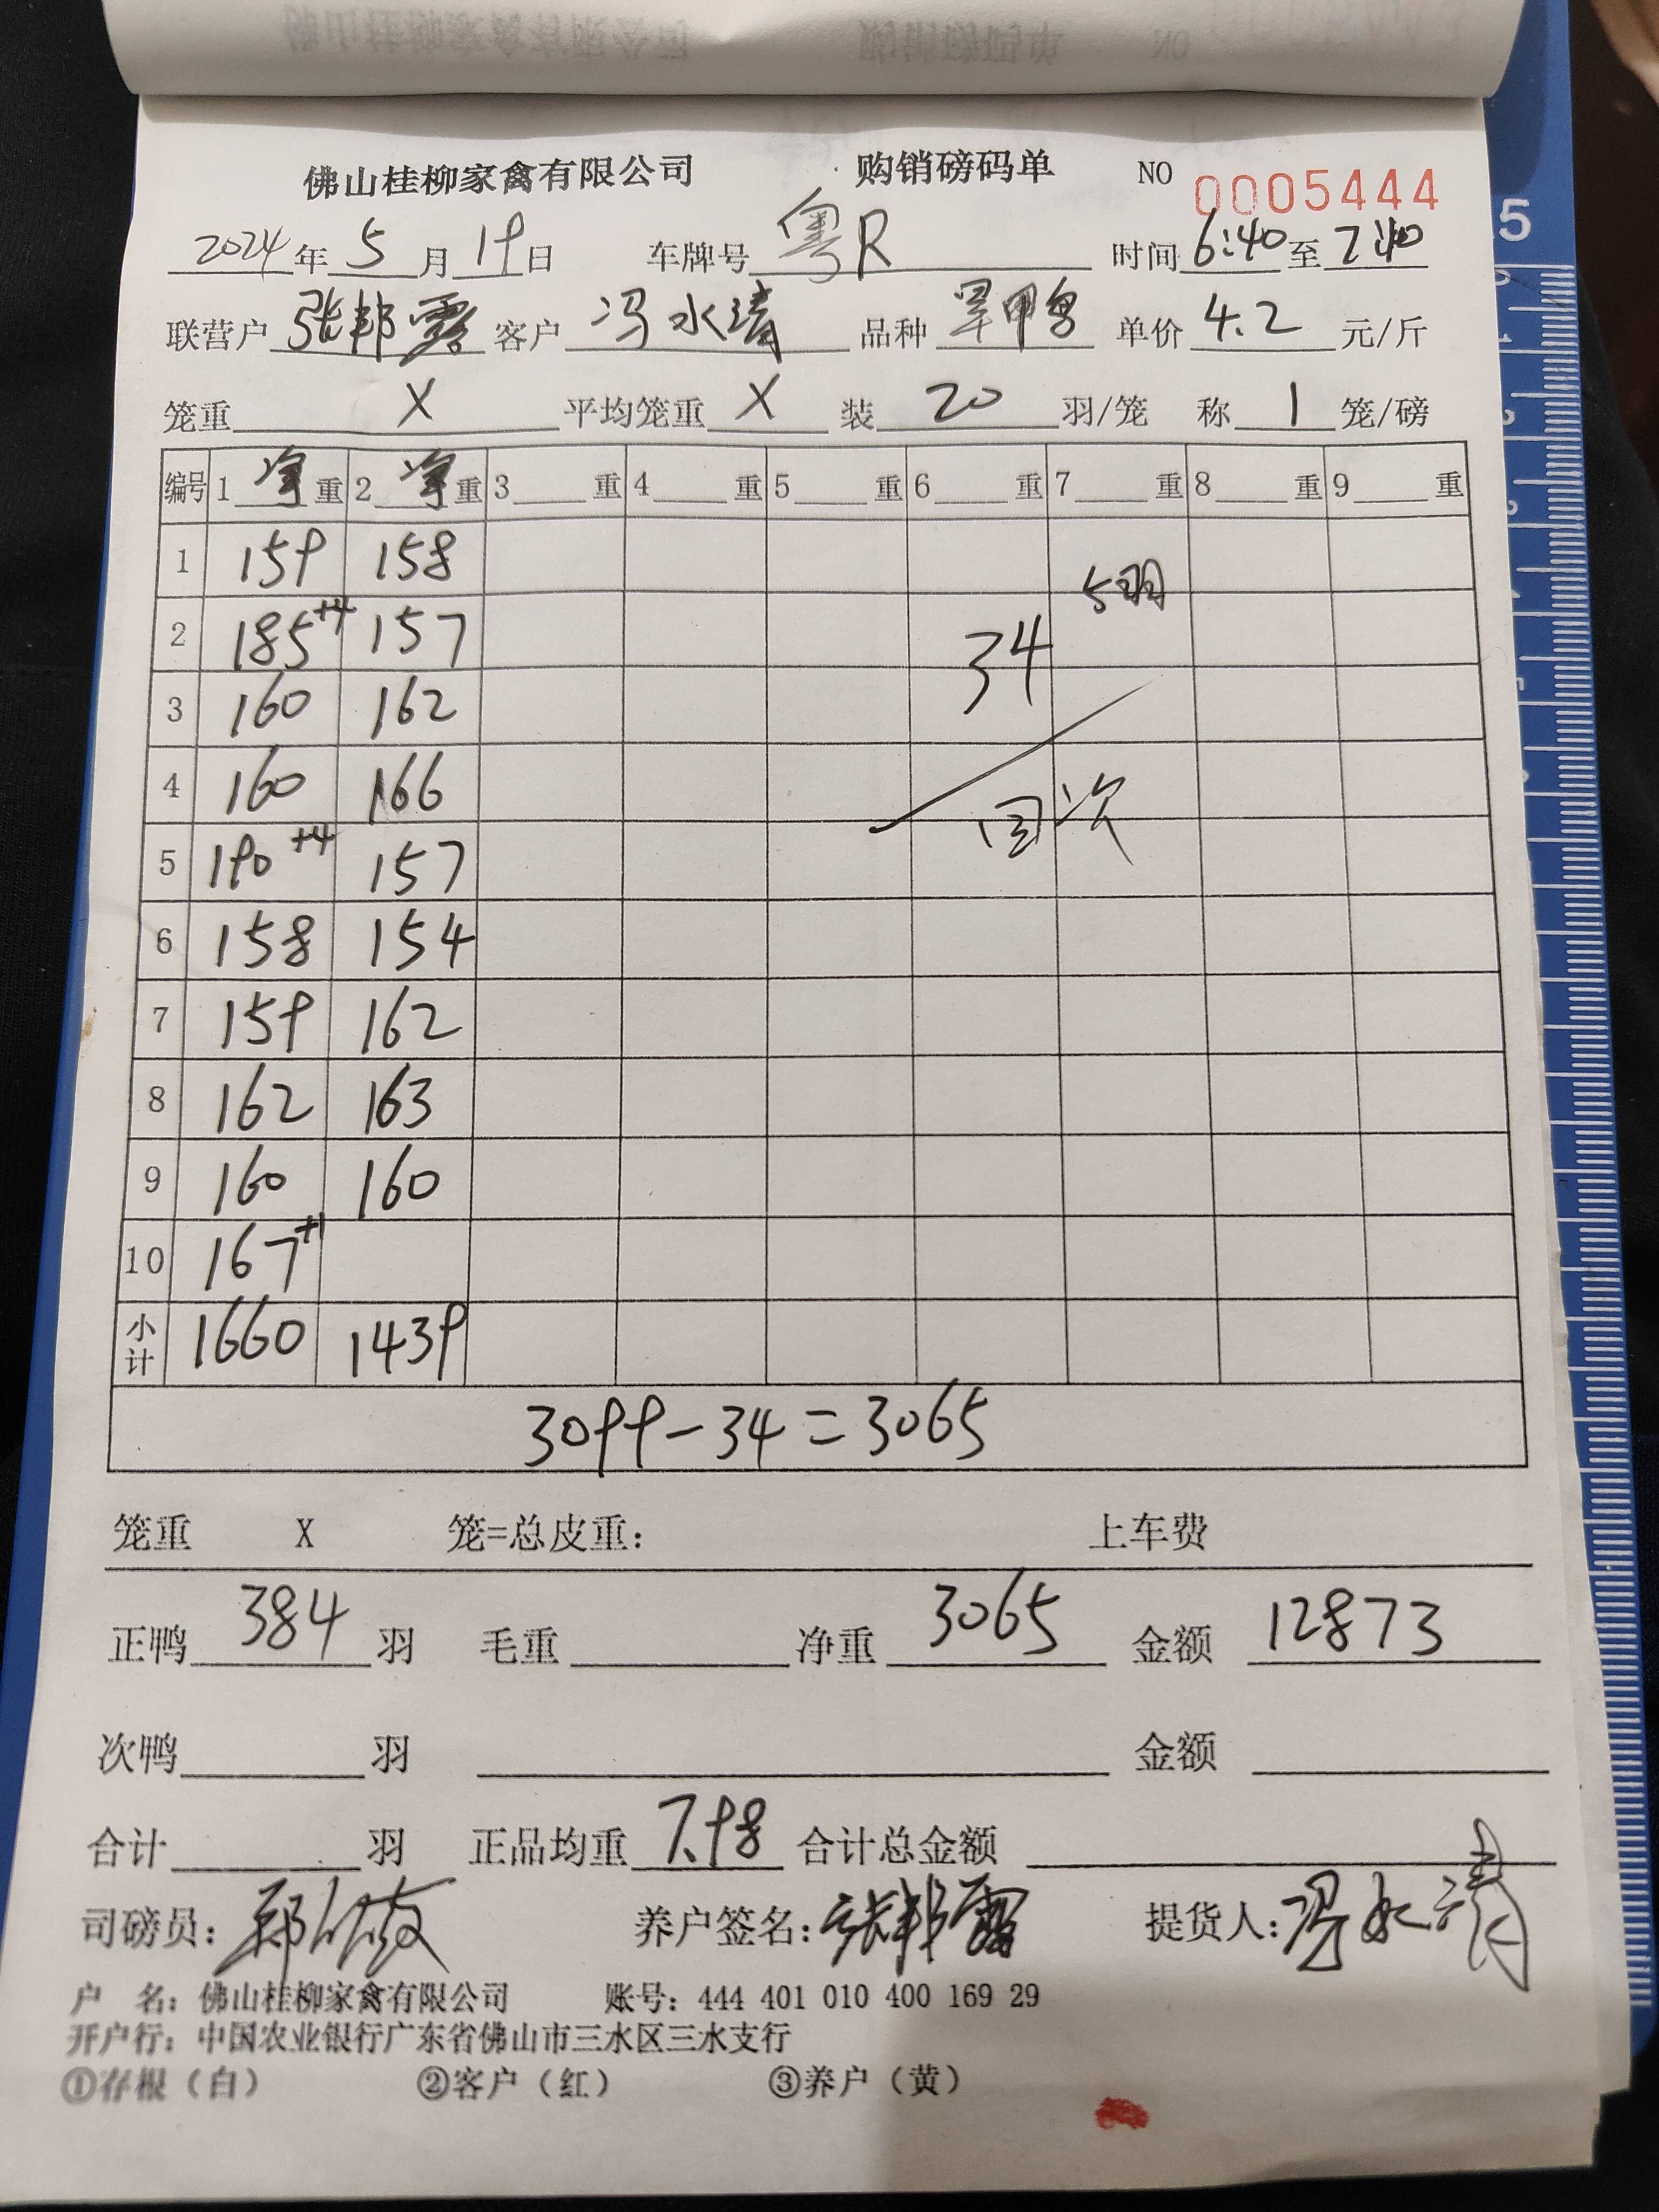 佛山桂柳家禽有限公司 购销磅码单 NO 0005444
2024年5月19日 车牌号 粤R 时间 6:40 至 7:40
联营户 张邦露 客户 冯水清 品种 旱甲鸭 单价 4.2 元/斤
笼重 X 平均笼重 X 装 20 羽/笼 称 1 笼/磅
编号 1 净 重 2 净 重 3 重 4 重 5 重 6 重 7 重 8 重 9 重
1 159 158
5羽
2 185+4 157 34
3 160 162
4 160 166
回次
5 190+4 157
6 158 154
7 159 162
8 162 163
9 160 160
10 167+1
小计 1660 1439
3099-34=3065
笼重 X 笼=总皮重: 上车费
正鸭 384 羽 毛重 净重 3065 金额 12873
次鸭 羽 金额
合计 羽 正品均重 7.98 合计总金额
司磅员: 养户签名: 张邦露 提货人: 冯水清
户 名: 佛山桂柳家禽有限公司 账号: 444 401 010 400 169 29
开户行: 中国农业银行广东省佛山市三水区三水支行
①存根（白） ②客户（红） ③养户（黄）